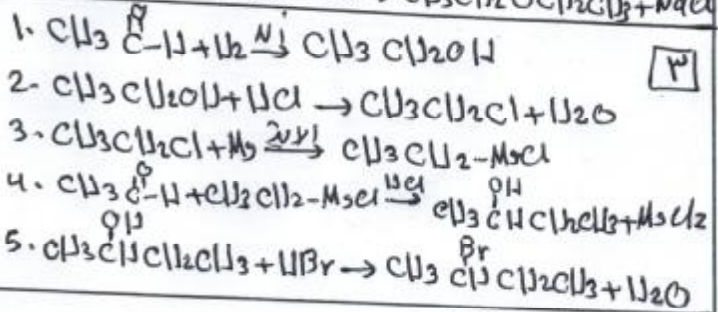 CH3CH2OCH2CH3+NaCl
1. CH3 C-H+H2 Ni→ CH3 CH2OH
O
٣
2- CH3CH2OH+HCl → CH3CH2Cl+H2O
3. CH3CH2Cl+Mg → CH3CH2-MgCl
O OH
4. CH3 C-H+CH3CH2-MgCl HCl→ CH3 CHCH2CH3+MgCl2
OH Br
5. CH3CHCH2CH3+HBr → CH3 CH CH2CH3+H2O